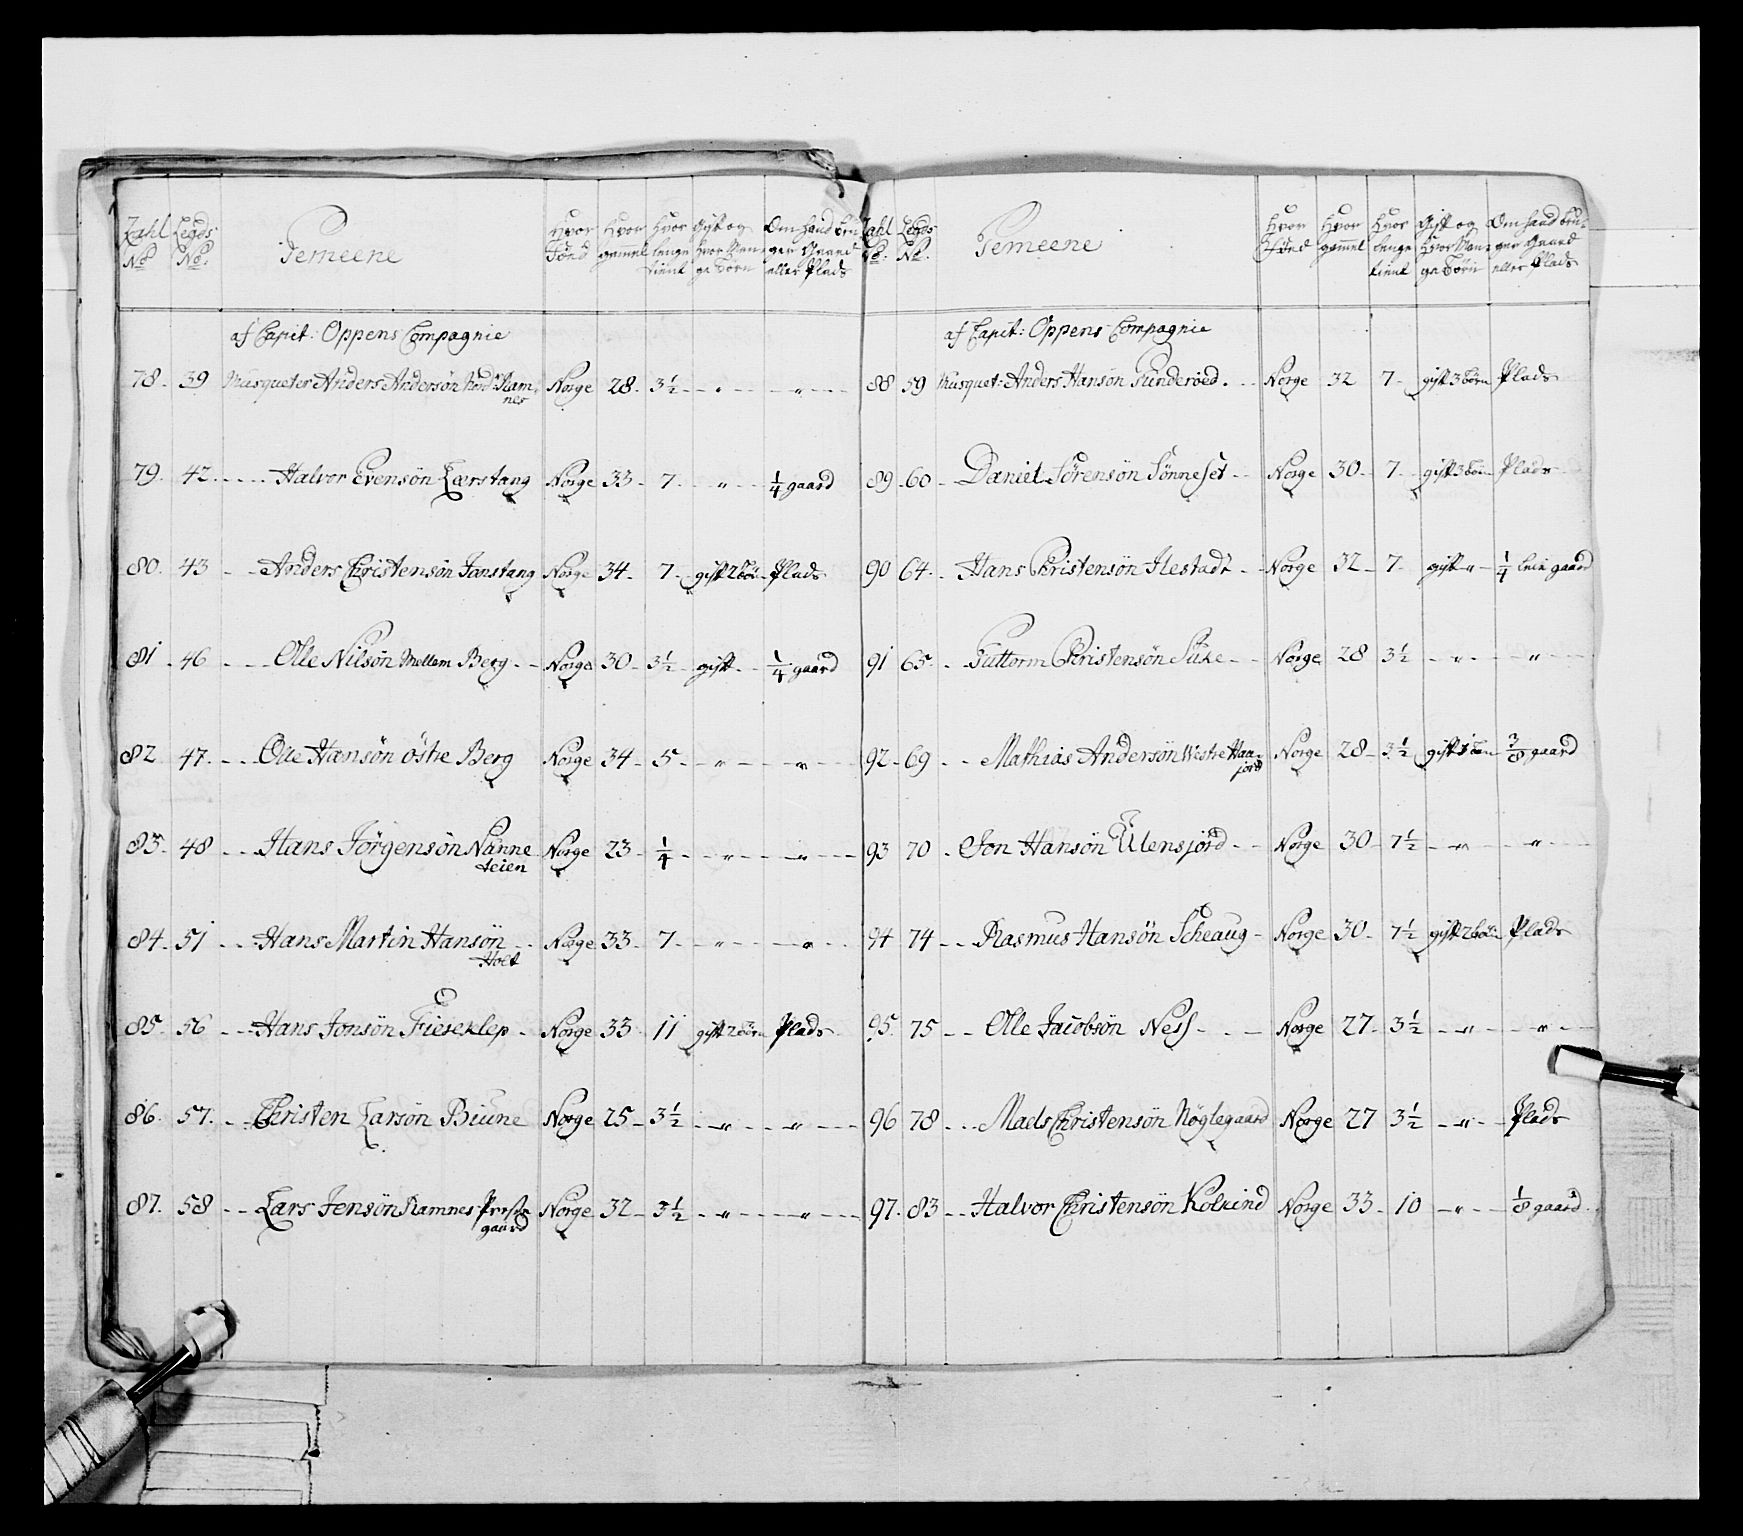 Zahl No Legds No. Gemeene Hvor Fönd Hvor gammel Hvor lenge tient Gift og Hvor Man-ge Börn Om hand bru-ger Gaard eller Plads
af Capit: Oppens Compagnie
78. 39 Musqueter Anders Andersön Nord Ram-nes Norge 28. 3½ " "
79. 42. Halvor Evensön Lærstang Norge 33. 7. " ¼ gaard
80. 43 Anders Christensön Jonstang Norge 34. 7. gift 2 börn Plads
81. 46 Olle Nilsön Mellem Berg Norge 30. 3½ gift ¼ gaard
82 47. Olle Hansön östre Berg Norge 34. 5. " "
83. 48 Hans Jörgensön Nanne teien Norge 23 ¼ " "
84. 51 Hans Martin Hansön Holt Norge 33. 7. " "
85. 56 Hans Jonsön Fiereklep Norge 33 11 gift 2 börn Plads
86. 57. Christen Larsön Biune Norge 25 3½ " "
87. 58 Lars Jensön Ramnes Præste gaard Norge 32 3½ " "
Zahl No. Legds No. Gemeene Hvor Fönd Hvor gammel Hvor lenge tient Gift og Hvor Man-ge Börn Om hand bru-ger Gaard eller Plads
af Capit: Oppens Compagnie
88 59 Musquet: Anders Hansön Sunderöed. Norge 32 7. gift 3 börn Plads
89. 60 Daniel Sörensön Sönneset Norge 30. 7. gift 3 börn Plads
90 64. Hans Christensön Ilestadt Norge 32. 7. gift " ¼ leie gaard
91 65. Guttorm Christensön Süxe Norge 28 3½ " "
92. 69 Mathias Andersön Westre Haa-jord Norge 28. 3½ gift 1 barn ⅜ gaard
93 70. Jon Hansön Ülensjörd Norge 30. 7½ " "
94 74 Rasmus Hansön Scheaug Norge 30. 7½ gift 2 börn Plads
95. 75 Olle Jacobsön Ness Norge 27. 3½ " "
96 78 Mads Christensön Nöglegaard Norge 27 3½ " Plads
97. 83 Halvor Christensön Kolkind Norge 33. 10 " ⅛ gaard.